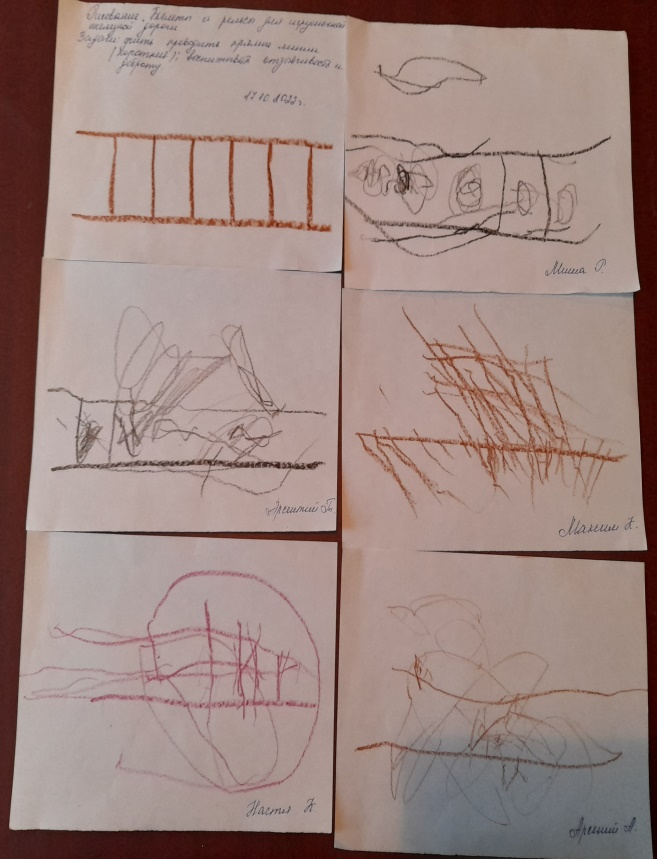 Рисование. Билеты и рельсы для игрушечной
железной дороги
Задачи: учить проводить прямые линии
(короткие); воспитывать отзывчивость и
доброту
17.10.2022г.
Миша Р.
Арсентий П.
Максим К.
Настя К
Арсений А.